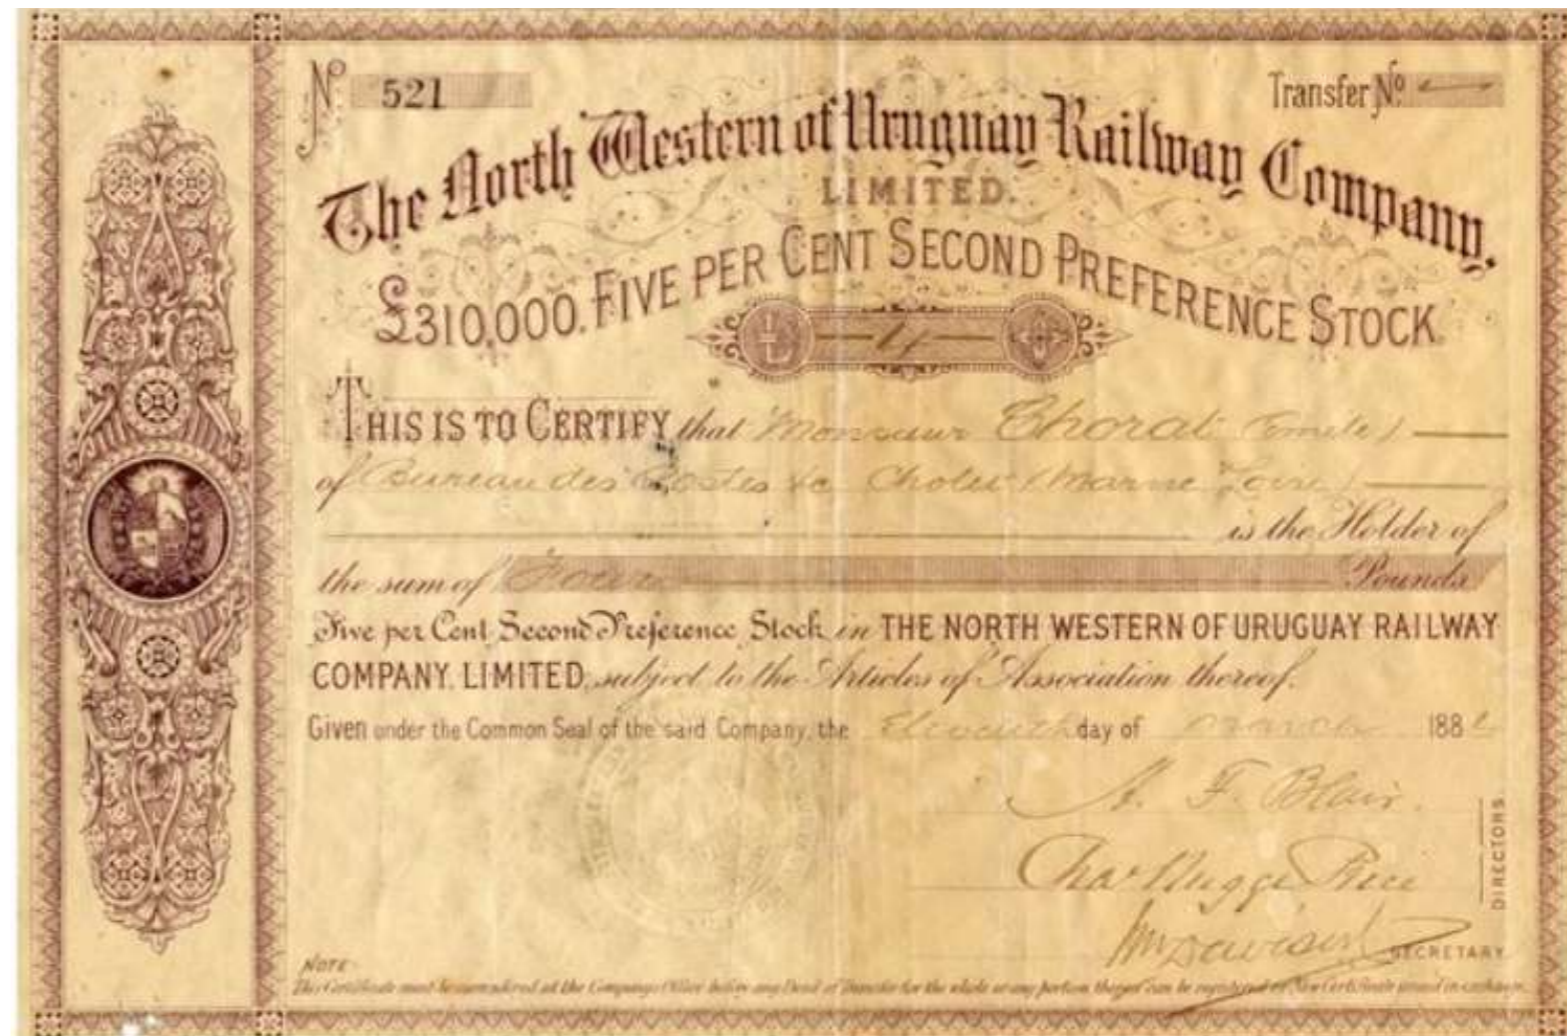 Nº 521
Transfer Nº
The North Western of Uruguay Railway Company,
LIMITED.
£310,000. FIVE PER CENT SECOND PREFERENCE STOCK.
THIS IS TO CERTIFY that Monsieur Thorat (Emile)
of Bureau des Postes &c Cholet (Marne Loire)
is the Holder of
the sum of Pounds
Five per Cent Second Preference Stock in THE NORTH WESTERN OF URUGUAY RAILWAY
COMPANY, LIMITED, subject to the Articles of Association thereof.
Given under the Common Seal of the said Company, the Eleventh day of March 188
A. F. Blair.
DIRECTORS
SECRETARY
NOTE
This Certificate must be surrendered at the Company's Office before any Deed of Transfer for the whole or any portion thereof can be registered or New Certificate issued in exchange.